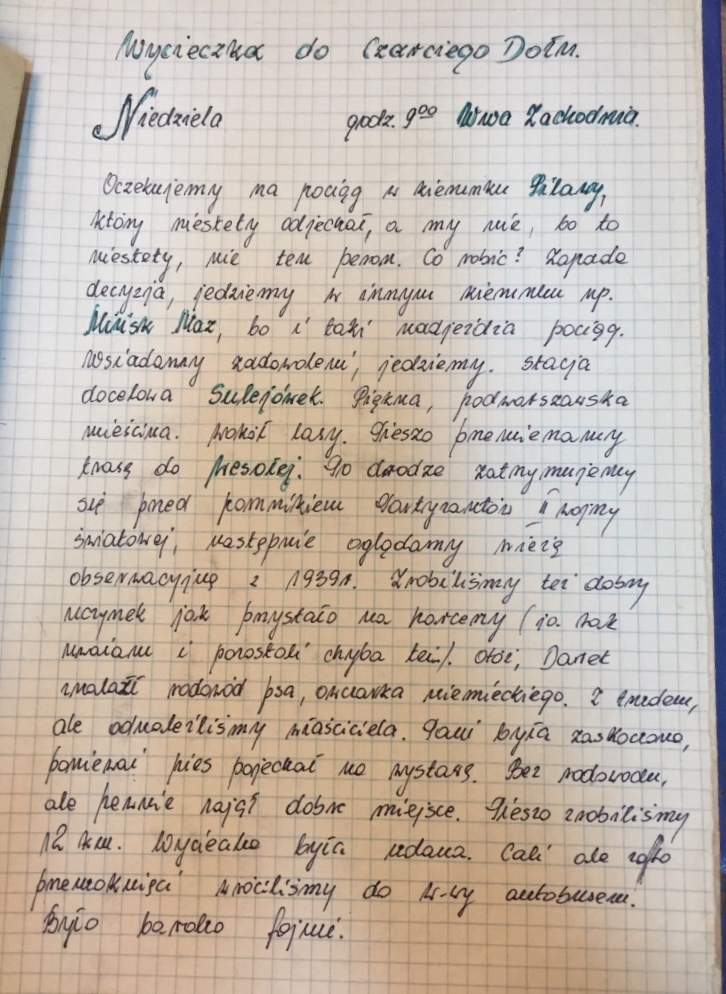 Wycieczka do Czarciego Dołu.
Niedziela godz. 9⁰⁰ Wwa Zachodnia.
Oczekujemy na pociąg w kierunku Pilawy,
który niestety odjechał, a my nie, bo to
niestety, nie ten peron. Co robić? Zapada
decyzja, jedziemy w innym kierunku np.
Mińsk Maz, bo i taki nadjeżdża pociąg.
Wsiadamy zadowoleni, jedziemy. stacja
docelowa Sulejówek. Piękna, podwarszawska
mieścina. Wokół lasy. Pieszo przemierzamy
trasę do Wesołej. Po drodze zatrzymujemy
się przed pomnikiem Partyzantów II wojny
światowej, następnie oglądamy wieżę
obserwacyjną z 1939r. Zrobiliśmy też dobry
uczynek jak przystało na harcerzy (ja tak
uważam i pozostali chyba też). Otóż, Darek
znalazł rodowód psa, owczarka niemieckiego. Z trudem,
ale odnaleźliśmy właściciela. Pani była zaskoczona,
ponieważ pies pojechał na wystawę. Bez rodowodu,
ale pewnie zajął dobre miejsce. Pieszo zrobiliśmy
12 km. Wycieczka była udana. Cali ale
przemoknięci wróciliśmy do W-wy autobusem.
Było bardzo fajnie.